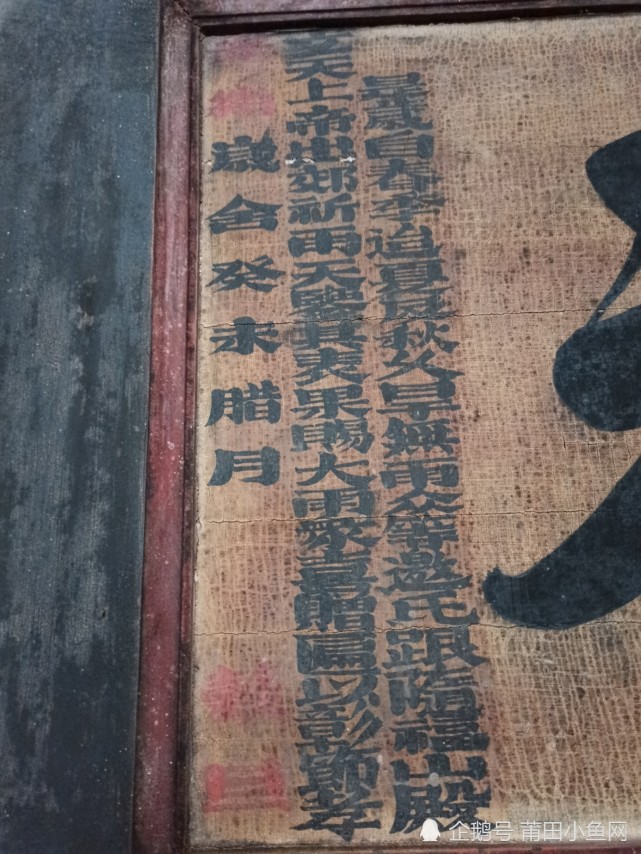 是歲自春季迨夏及秋久旱無雨众等邀氏跟隨福山殿
玄天上帝出郊祈雨天鑒其衷果賜大雨衆喜贈匾以彰節孝
歲合癸未腊月
企鹅号 莆田小鱼网